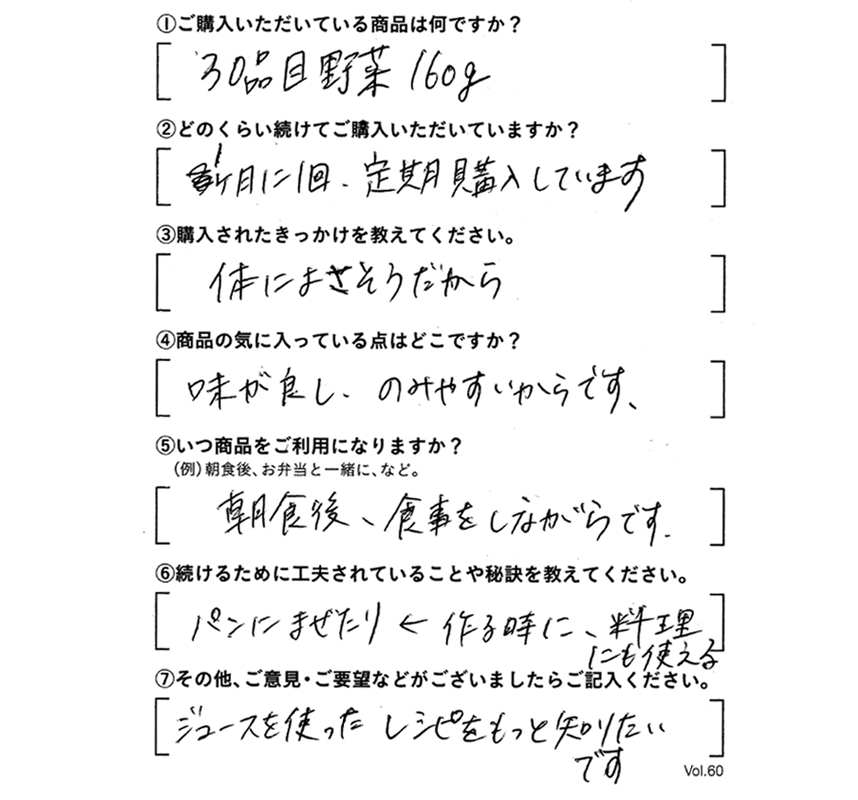 ①ご購入いただいている商品は何ですか?
30品目野菜 160g
②どのくらい続けてご購入いただいていますか?
1ヶ月に1回、定期購入しています
③購入されたきっかけを教えてください。
体によさそうだから
④商品の気に入っている点はどこですか?
味が良し、のみやすいからです、
⑤いつ商品をご利用になりますか?
(例)朝食後、お弁当と一緒に、など。
朝食後、食事をしながらです.
⑥続けるために工夫されていることや秘訣を教えてください。
パンにまぜたり ← 作る時に、料理
にも使える
⑦その他、ご意見・ご要望などがございましたらご記入ください。
ジュースを使った レシピをもっと知りたい
です
Vol.60